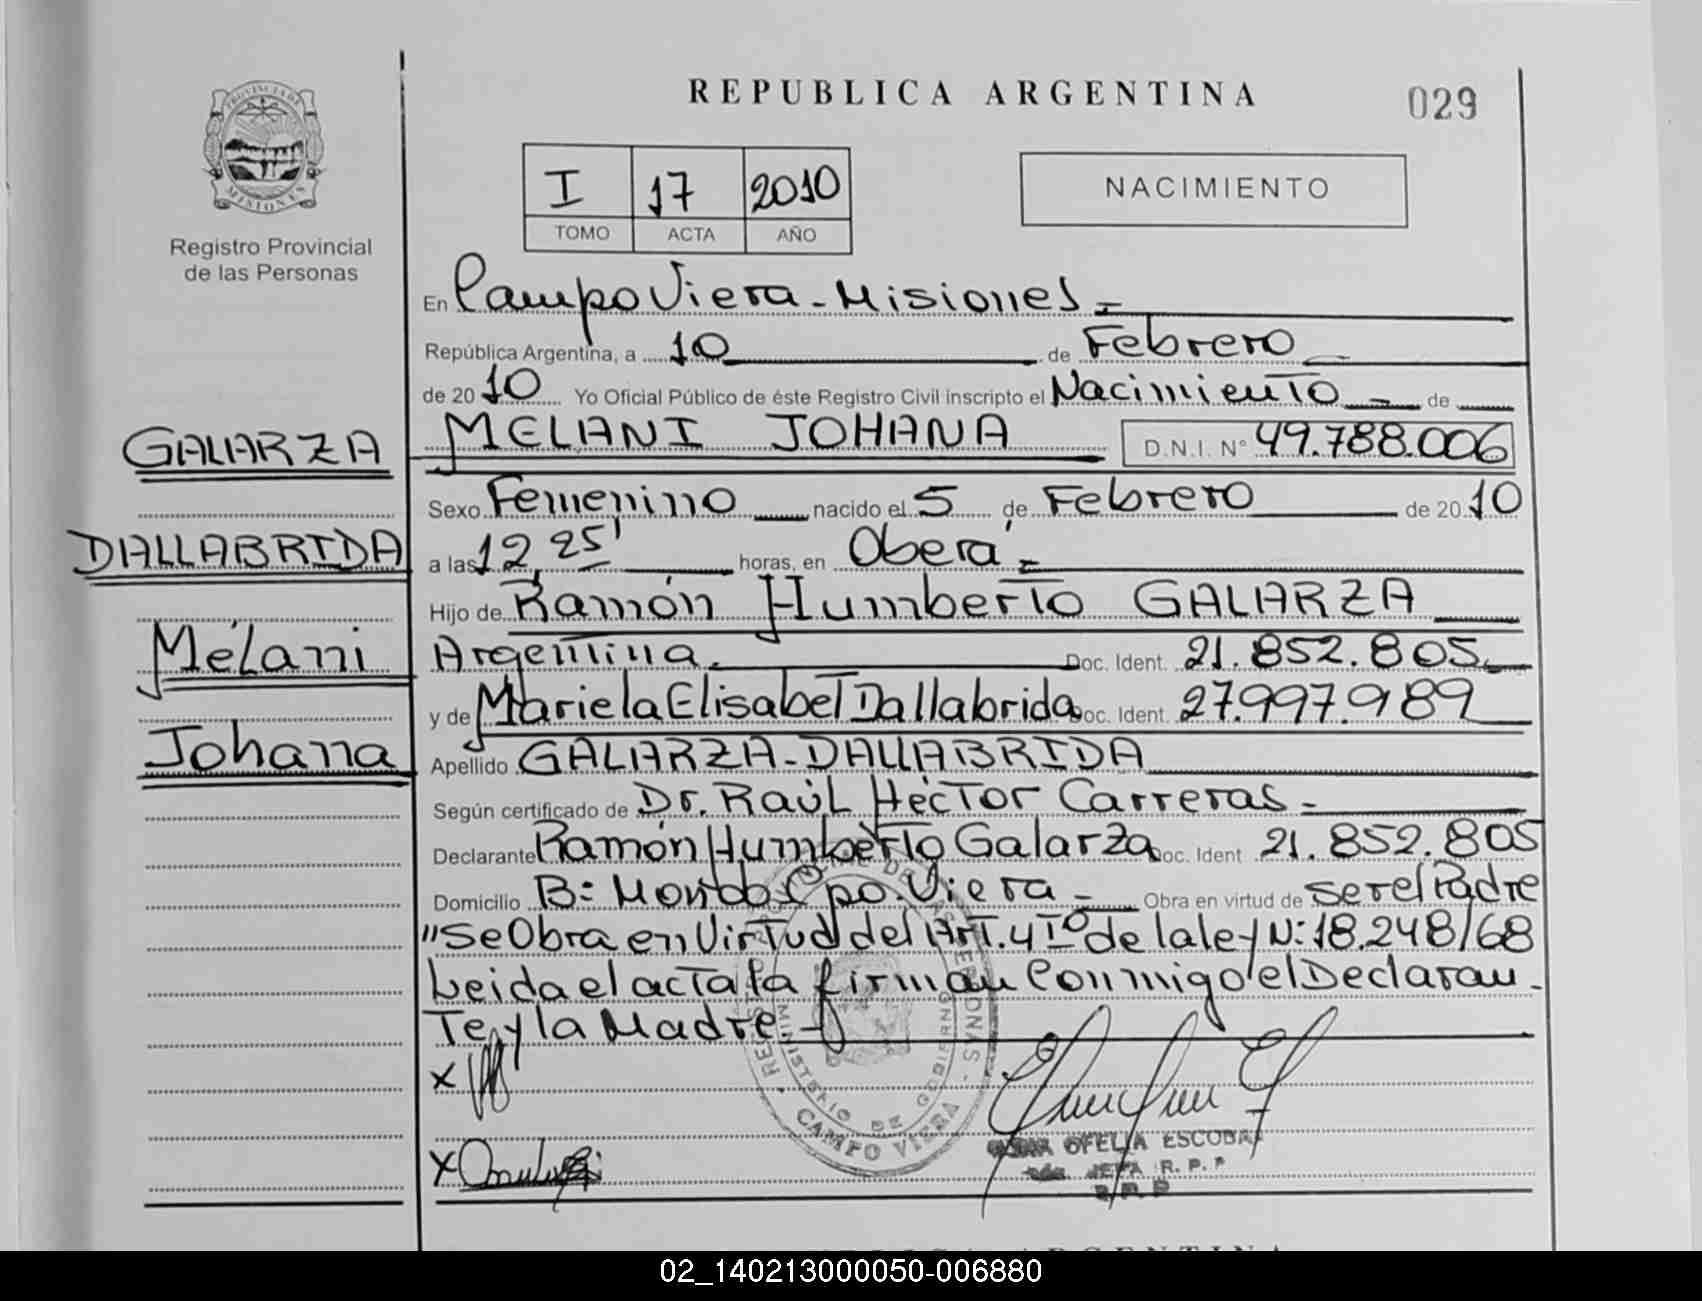 REPUBLICA ARGENTINA
029
PROVINCIA DE MISIONES
Registro Provincial
de las Personas
I 17 2010
TOMO ACTA AÑO
NACIMIENTO
En Campo Viera - Misiones -
República Argentina, a 10 de Febrero
de 20 10 Yo Oficial Público de éste Registro Civil inscripto el Nacimiento - de
MELANI JOHANA D.N.I. Nº 49.788.006
GALARZA
DALLABRIDA
Mélani
Johana
Sexo Femenino nacido el 5 de Febrero de 20 10
a las 12,25' horas, en Oberá -
Hijo de Ramón Humberto GALARZA
Argentina. Doc. Ident. 21.852.805.
y de Mariela Elisabet Dallabrida Doc. Ident. 27.997.989
Apellido GALARZA - DALLABRIDA
Según certificado de Dr. Raúl Héctor Carreras -
Declarante Ramón Humberto Galarza Doc. Ident 21.852.805
Domicilio B: Mondo Cpo. Viera - Obra en virtud de ser el Padre
"Se Obra en Virtud del Art. 4 Iº de la ley N: 18.248/68
Leida el acta la firman Conmigo el Declaran-
Te y la Madre -
X
X
REGISTRO PROVINCIAL DE LAS PERSONAS
MINISTERIO DE GOBIERNO
CAMPO VIERA
OFELIA ESCOBAR
JEFA R. P. P
02_140213000050-006880